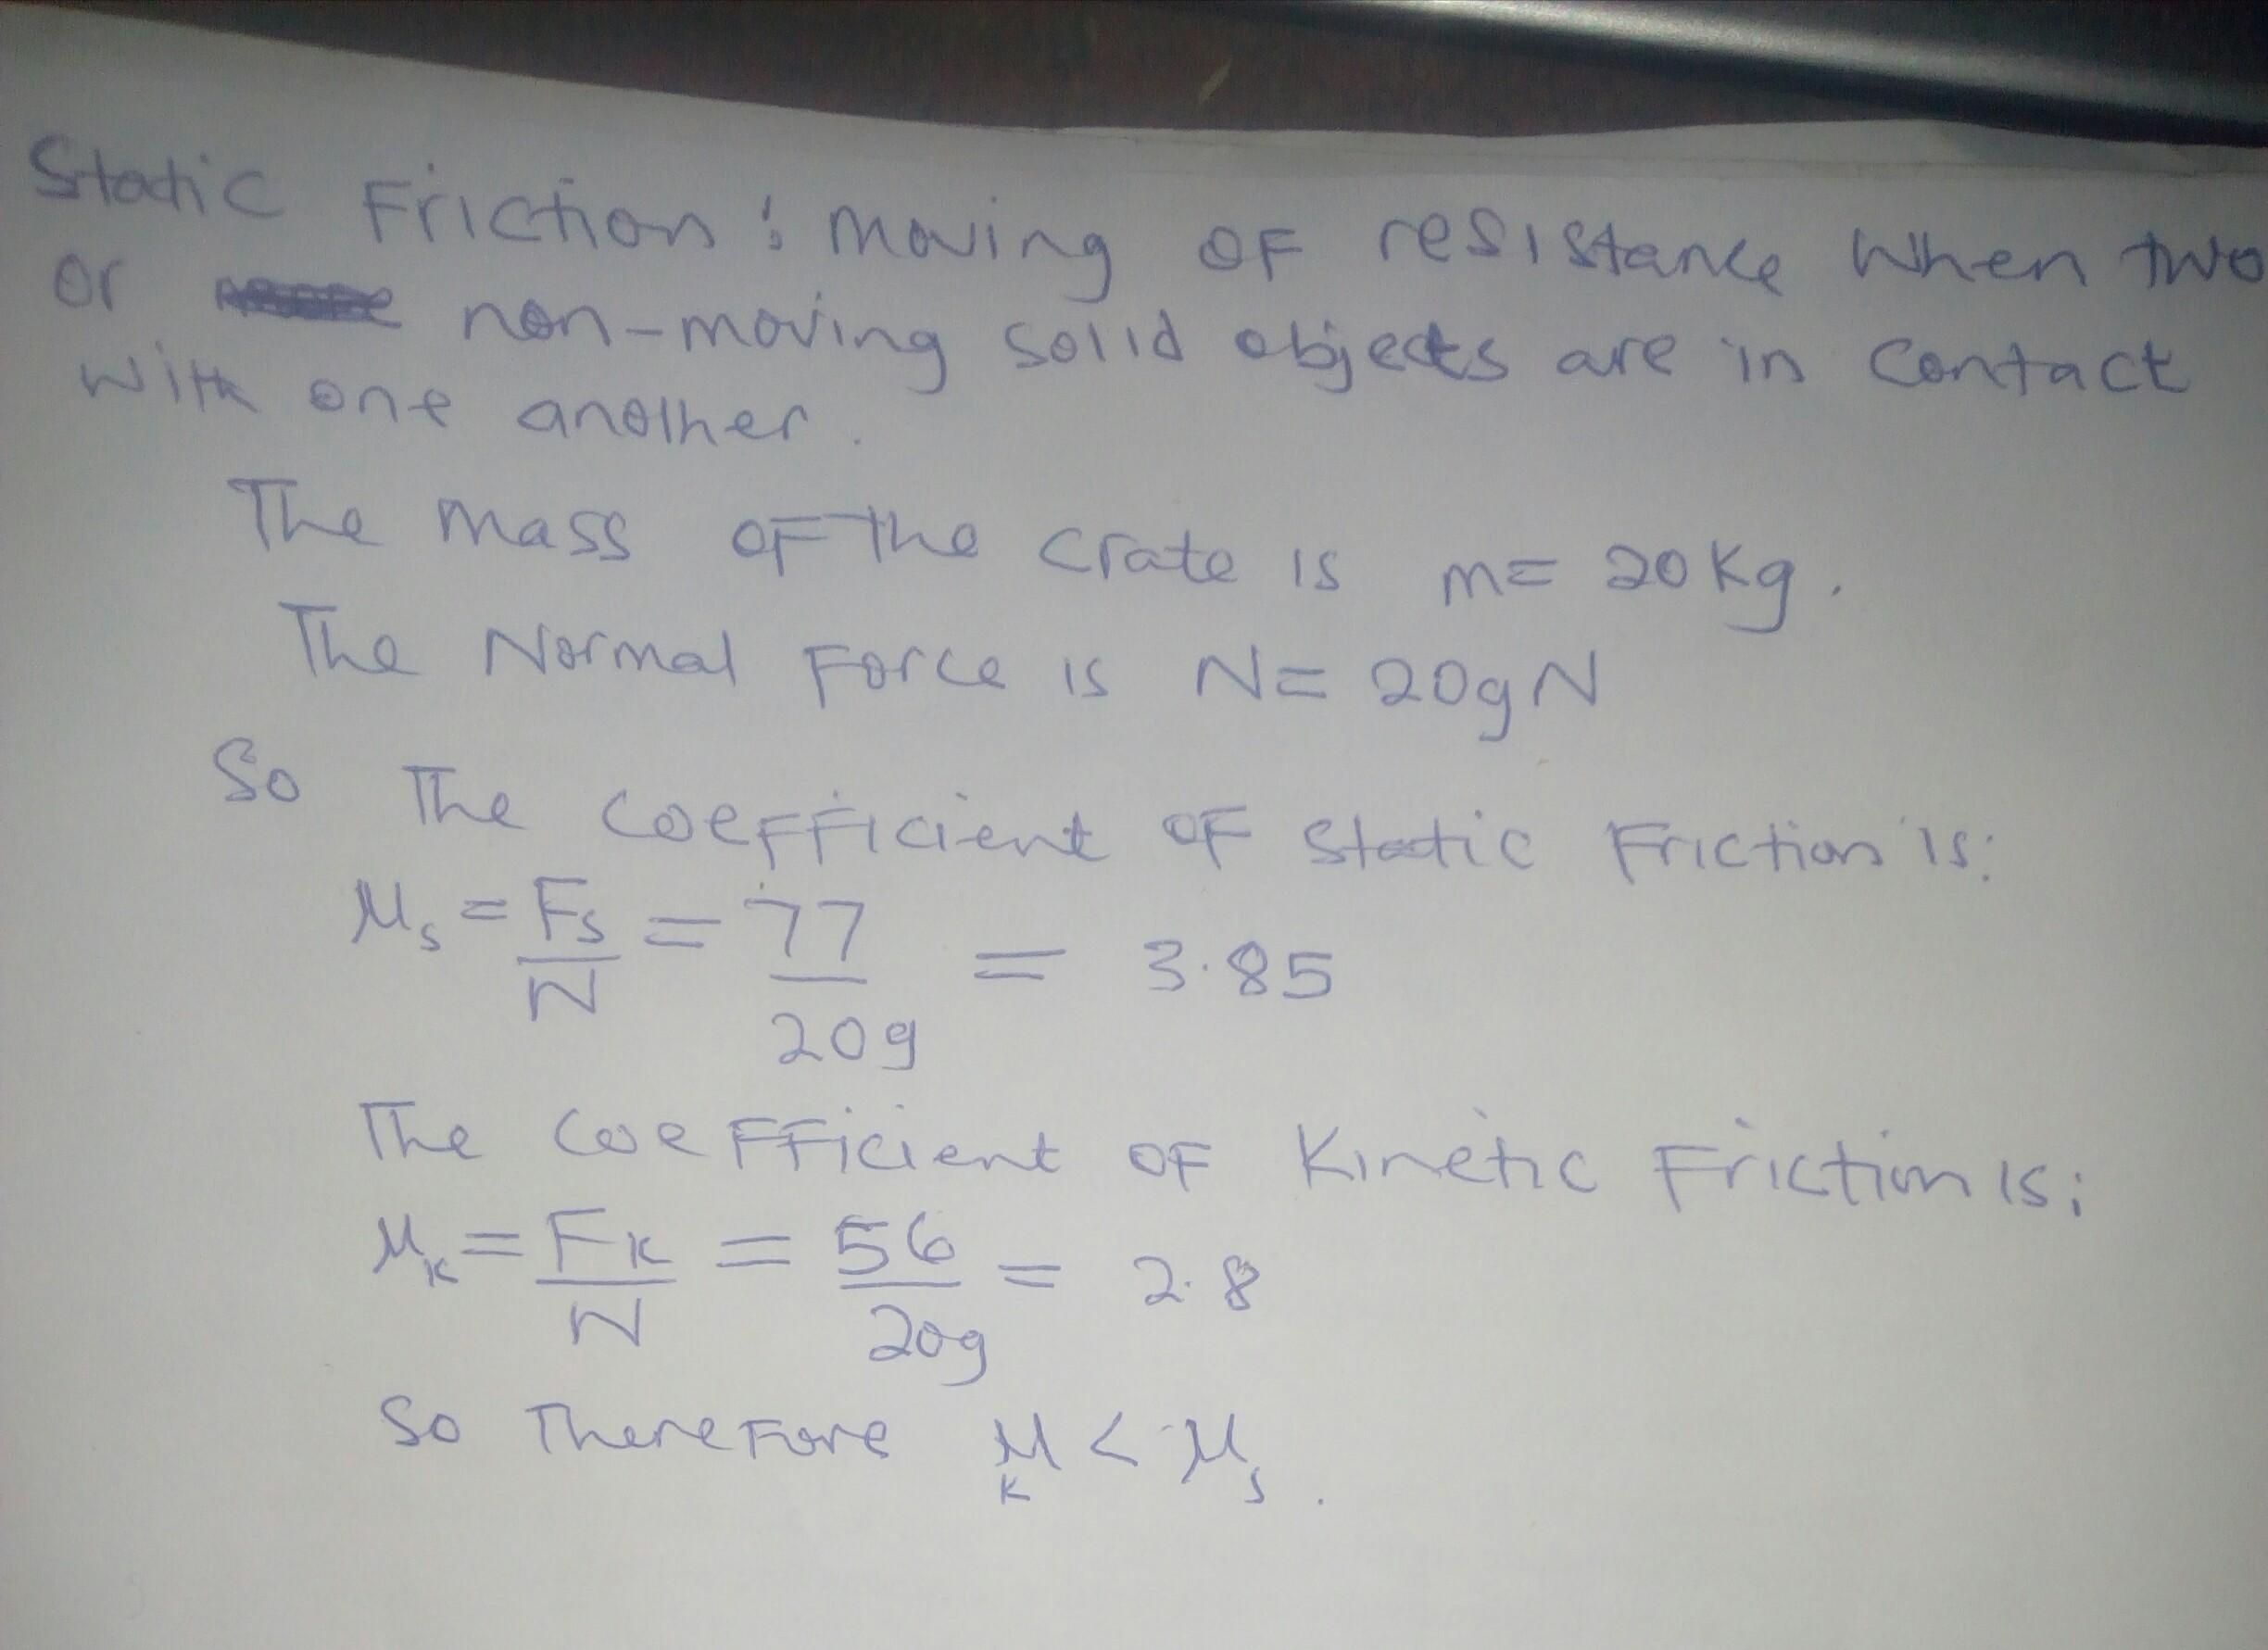 Static Friction: moving of resistance when two
or non-moving solid objects are in contact
with one another.
The mass of the crate is m= 20kg.
The Normal Force is N= 20gN
So The coefficient of static Friction is:
μs = Fs/N = 77/20g = 3.85
The coefficient of Kinetic Friction is:
μk = Fk/N = 56/20g = 2.8
So Therefore μk < μs.